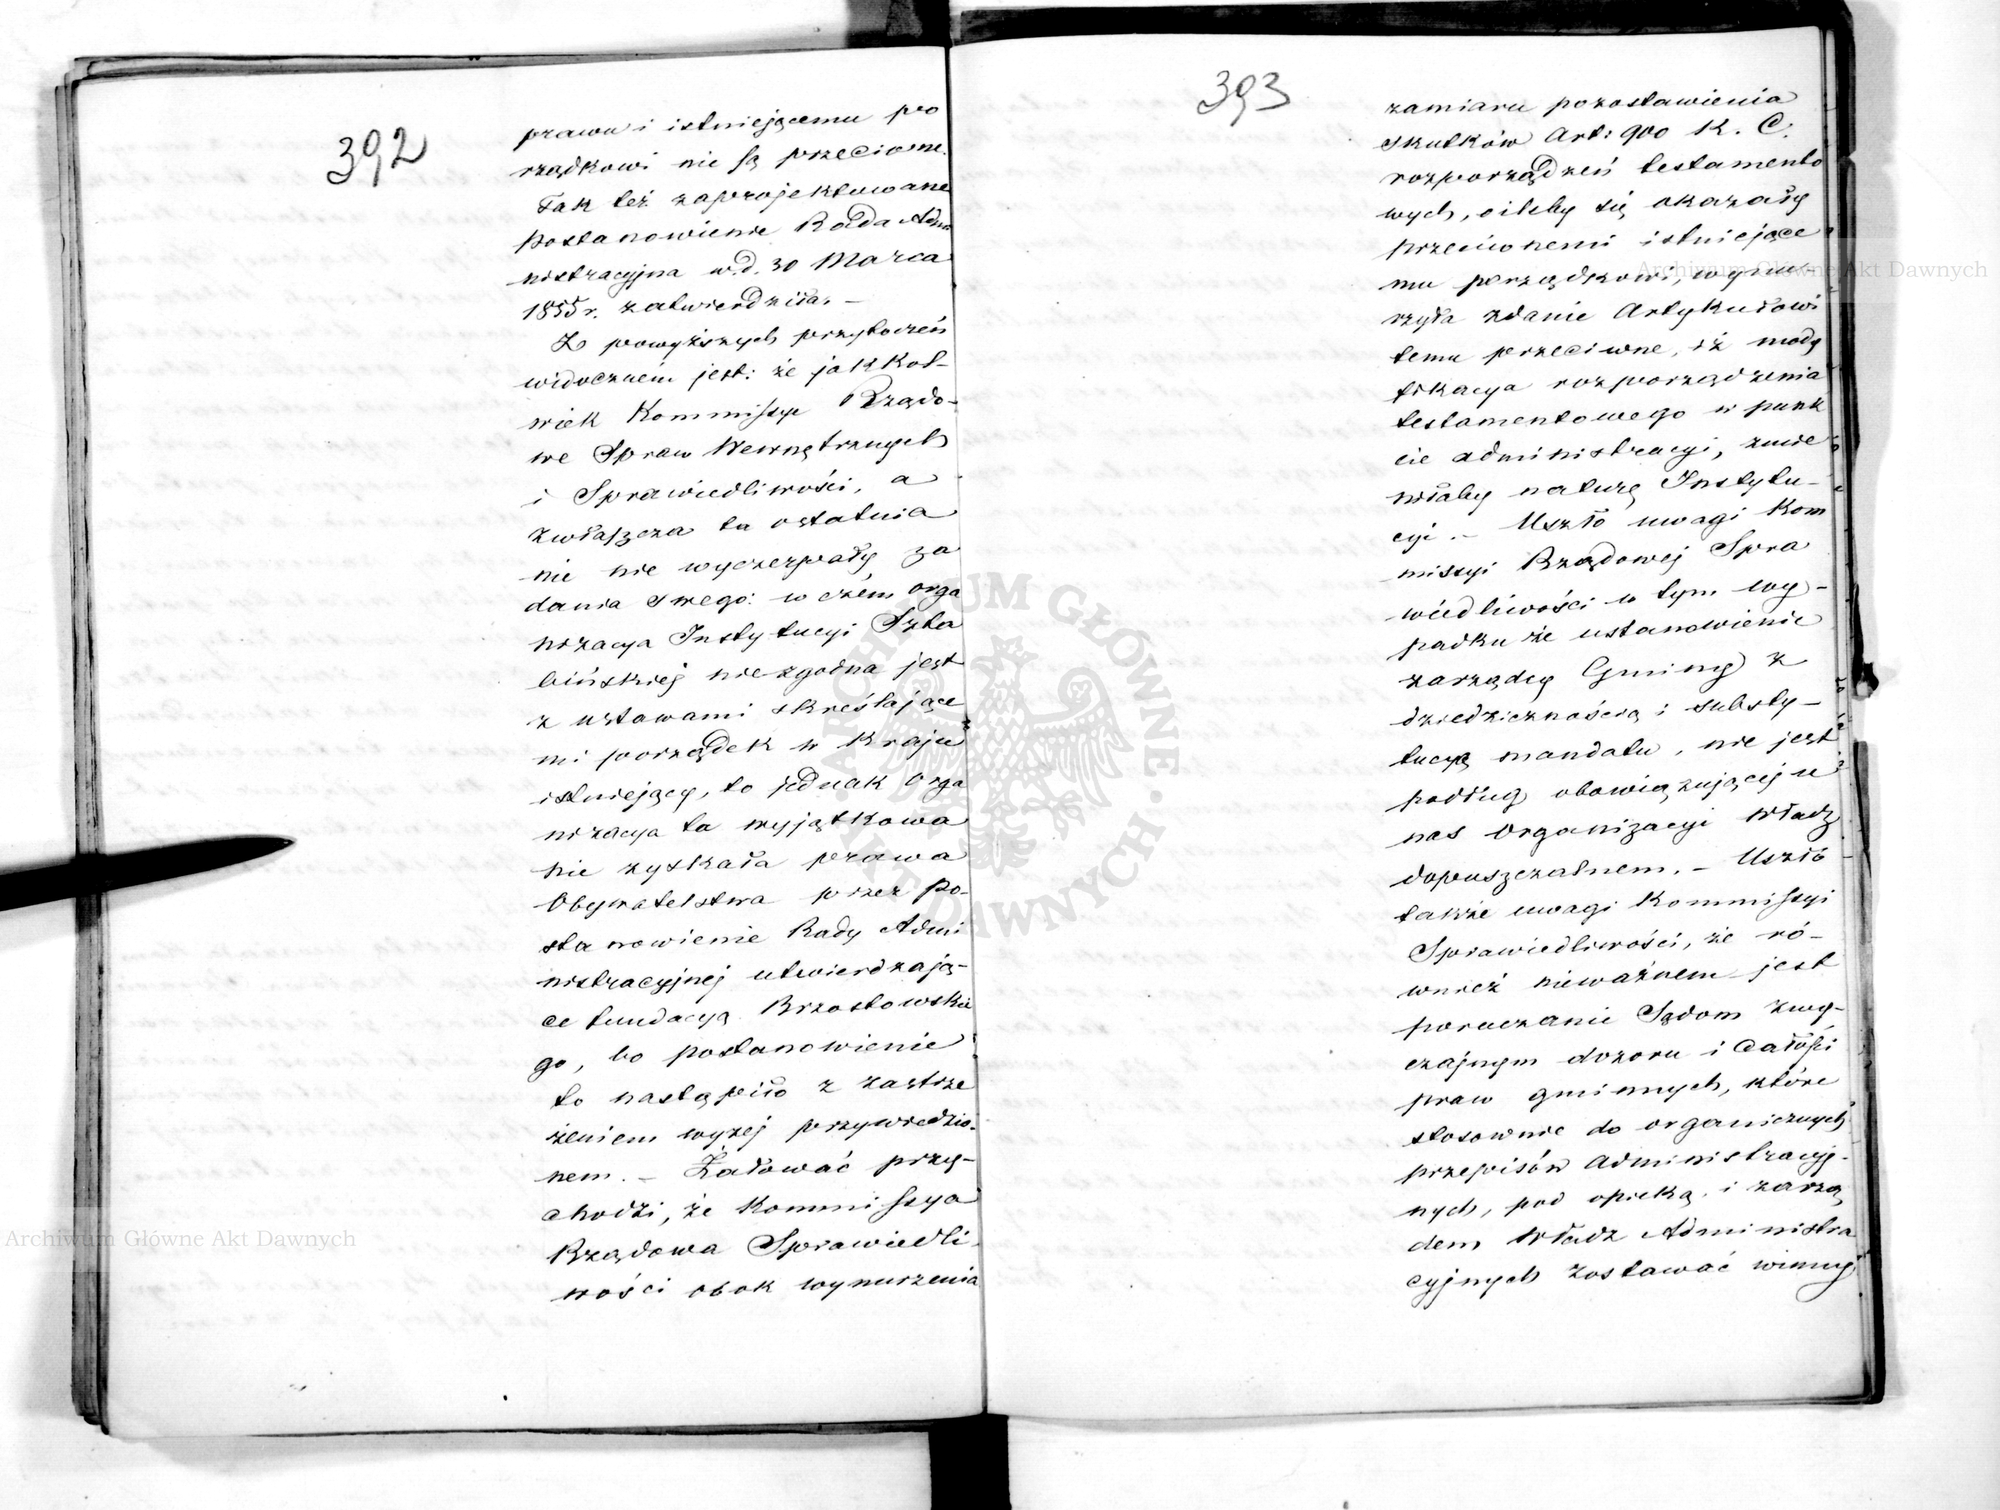 392
prawu i istniejącemu po
rządkowi nie są przeciwne.
Tak też zaprojektowane
postanowienie Rada Admi
nistracyjna w d. 30 Marca
1855 r. zatwierdziła. –
Z powyższych przytoczeń
widocznem jest: że jakkol-
wiek Kommissye Rządo-
we Spraw Wewnętrznych
i Sprawiedliwości, a
zwłaszcza ta ostatnia
nie nie wyczerpały za
dania swego: w czem orga
nizacya Instytucyi Szta
bińskiej niezgodna jest
z ustawami skreślające
mi porządek w kraju
istniejący, to jednak orga
nizacya ta wyjątkowa
nie zyskała prawa
Obywatelstwa przez po-
stanowienie Rady Admi
nistracyjnej utwierdzają-
ce fundacyą Brzostowskie
go, bo postanowienie
to nastąpiło z zastrze
żeniem wyżej przywiedzio-
nem. – Żałować przy-
chodzi, że Kommissya
Rządowa Sprawiedli-
wości obok wynurzenia
393
zamiaru pozostawienia
skutków Art: 900 K. C.
rozporządzeń testamento
wych, oileby się okazały
przeciwnemi istniejące
mu porządkowi, wynu-
rzyła zdanie Artykułowi
temu przeciwne, iż mody
fikacya rozporządzenia
testamentowego w punk
cie administracyi, zmie
niłaby naturę Instytu-
cyi. – Uszło uwagi Kom
missyi Rządowej Spra
wiedliwości w tym wy-
padku że ustanowienie
zarządcy Gminy z
dziedzicznością i substy-
tucyą mandatu, nie jest
podług obowiązującej u
nas Organizacyi Władz
dopuszczalnem. – Uszło
także uwagi Kommissyi
Sprawiedliwości, że ró-
wnież nieważnem jest
poruczanie Sądom zwy-
czajnym dozoru i całości
praw gminnych, które
stosownie do organicznych
przepisów Administracyj-
nych, pod opieką i zarzą
dem Władz Administra
cyjnych zostawać winny
Archiwum Główne Akt Dawnych
Archiwum Główne Akt Dawnych
ARCHIWUM GŁÓWNE AKT DAWNYCH